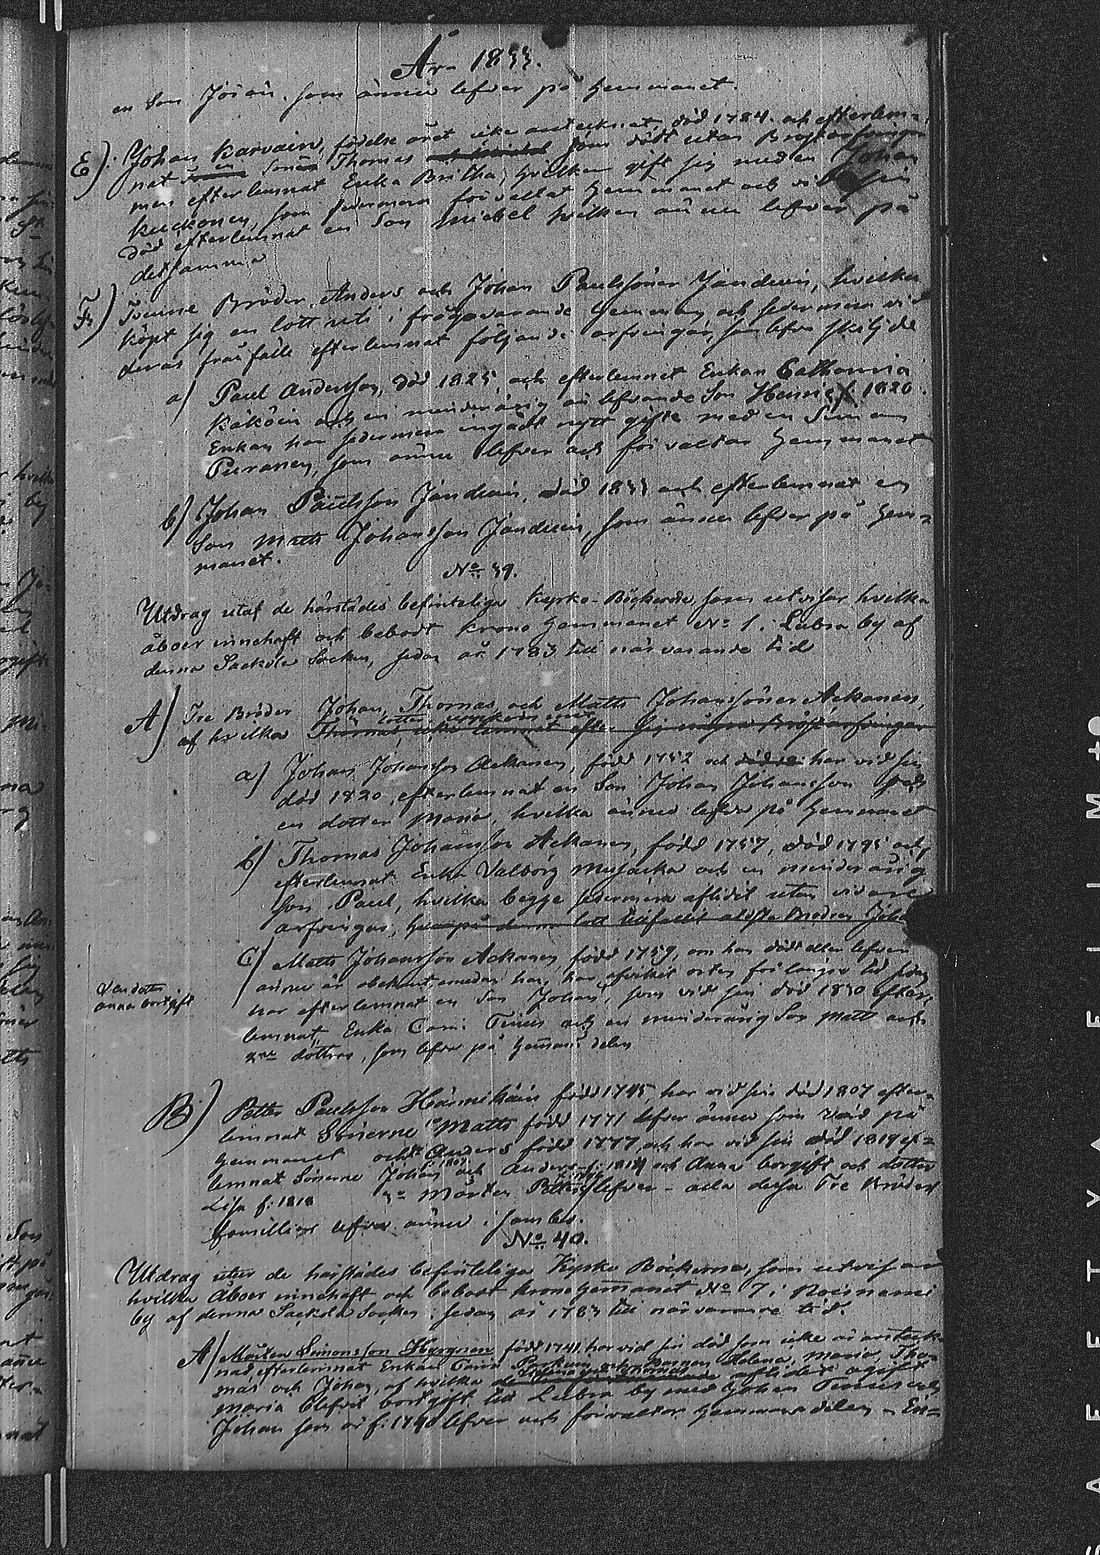 År 1833.
en Son Josai. som ännu lefver på Hemmanet.
E) Johan Karvain, födelse året icke antecknat död 1784. och efterlem-
nat Sonen Thomas som dödt utan Bröstarfvingar
men efterlemnat Enka Britha, hvilken gift sig med en Johan
Kuckonen, som sedermera förvaltat Hemmanet och vid sin
död efterlemnat en Son Michel hvilken ännu lefver på
detsamma
F) Tvenne Bröder, Anders och Johan Paulssöner Jändrin, hvilka
köpt sig en lott uti frågavarande Hemman och sedermera vid
deras frånfälle efterlemnat följande arfvingar, som lefva skiljde
a) Paul Andersson, död 1825, och efterlemnat Enkan Catharina
Käköin och en minderårig än lefvande Son Henric 1820
Enkan har sedermera ingådt nytt gifte med en Simon
Puranen, som ännu lefver och förvaltar Hemmanet
b) Johan Paulsson Jändrin, död 1833 och efterlemnat en
Son Matts Johansson Jändrin, som ännu lefver på Hem-
manet.
No 39.
Utdrag utaf de härstädes befinteliga Kyrko-Böckerne, som utvisar hvilka
åboer innehaft och bebodt Krono Hemmanet No 1. Leubra by af
denna Sackola Socken, sedan år 1783 till närvarande tid
A) Tre Bröder Johan, Thomas, och Matts Johanssöner Ackanen,
af hvilka Thomas icke lemnat efter sig några Bröstarfvingar
a) Johan Johansson Ackanen, född 1752 och har vid sin
död 1820, efterlemnat en Son Johan Johansson och
en dotter Maria, hvilka ännu lefva på Hemmanet
b) Thomas Johansson Ackanen, född 1757, död 1795 och
efterlemnat Enka Valborg Musacka och en minderårig
Son Paul, hvilka begge sedermera aflidit utan vidare
arfvingar,
C) Matts Johansson Ackanen, född 1759, om han död eller lefver
ännu är obekant emedan han har afvikit orten för längre tid sedan
har efterlemnat en Son Johan, som vid sin död 1830 efter-
lemnat Enka Carin och en minderårig Son Matts och
döttrar, som lefva på Hemans delen
anna bortgift
B) Petter Paulsson Härmikäin född 1745, har vid sin död 1807 efter-
lemnat Sönerne Matts född 1771 lefver ännu som värd på
Hemmanet och Anders född 1777, och har vid sin död 1819 ef-
lemnat Sönerne Johan 1803 och Anders f. 1814 och Anna borgift och dotter
Lisa f. 1818 Mårten Pettersson lefver - alla dessa Tre Bröders
familler lefva ännu i sambo.
No 40.
Utdrag utur de härstädes befinteliga Kyrko Böckerna, som utvisar
hvilka åboer innehaft och bebodt Krono Hemanet No 7 i Noisniemi
by af denna Sackola Socken, sedan år 1783 till närvarande tid.
A) Mårten Simonsson Hyrynen född 1741, har vid sin död som icke är anteck-
nad, efterlemnat Enkan Carin Helena, Maria, Tho-
mas och Johan, af hvilka aflidit ogift
Maria blefvit bortgift till Leubra by med Johan
Johan som är f. 1790 lefver och förvaltar Hemmansdelen - En-